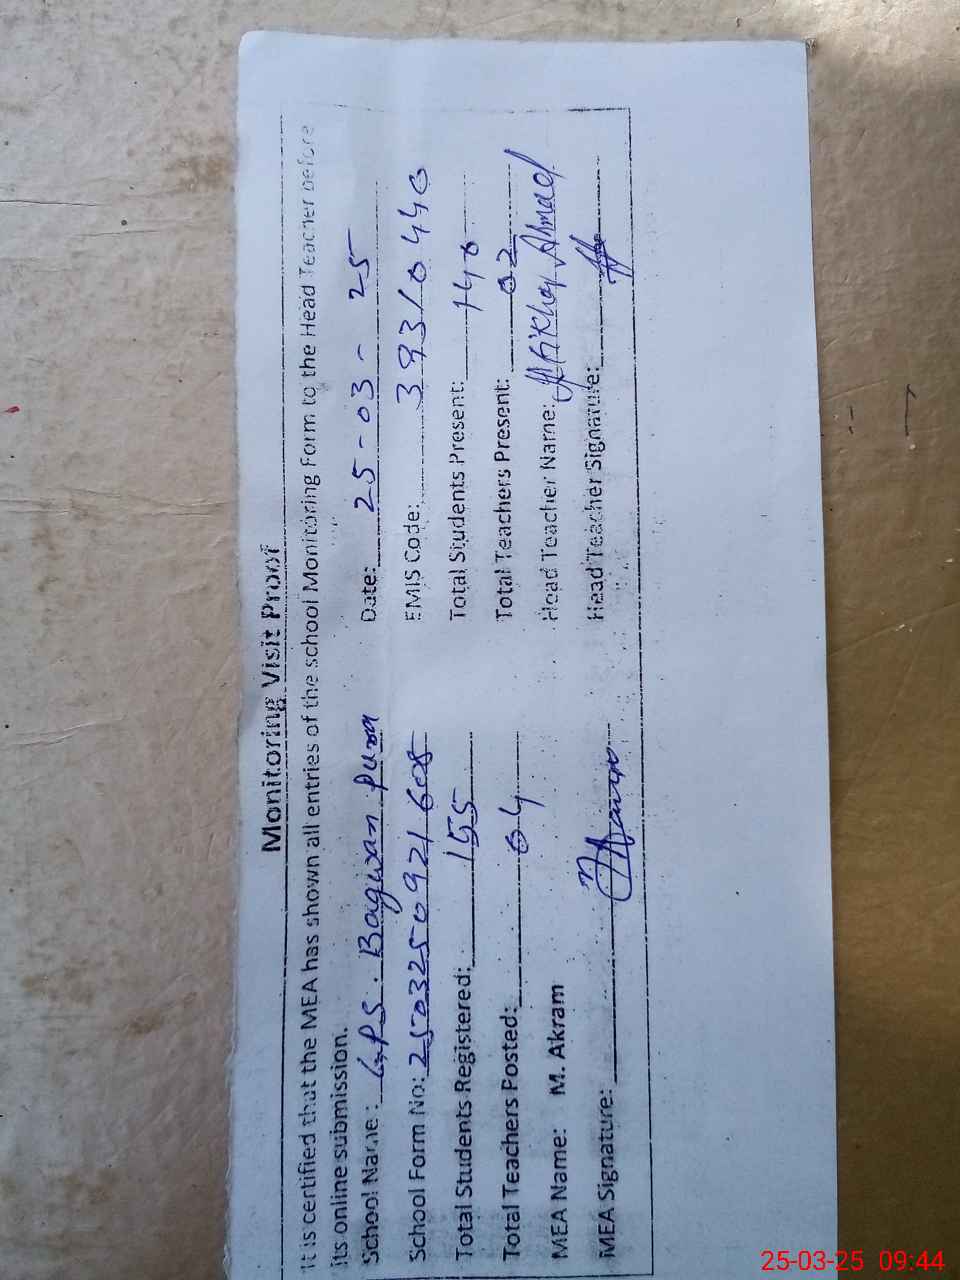 Monitoring Visit Proof
It is certified that the MEA has shown all entries of the school Monitoring Form to the Head Teacher before
its online submission.
School Name: GPS. Bagwan Pura Date: 25-03-25
School Form No: 2503250921608 EMIS Code: 39310440
Total Students Registered: 155 Total Students Present: 140
Total Teachers Posted: 04 Total Teachers Present: 02
MEA Name: M. Akram Head Teacher Name: Iftikhar Ahmad
MEA Signature: Head Teacher Signature:
25-03-25 09:44